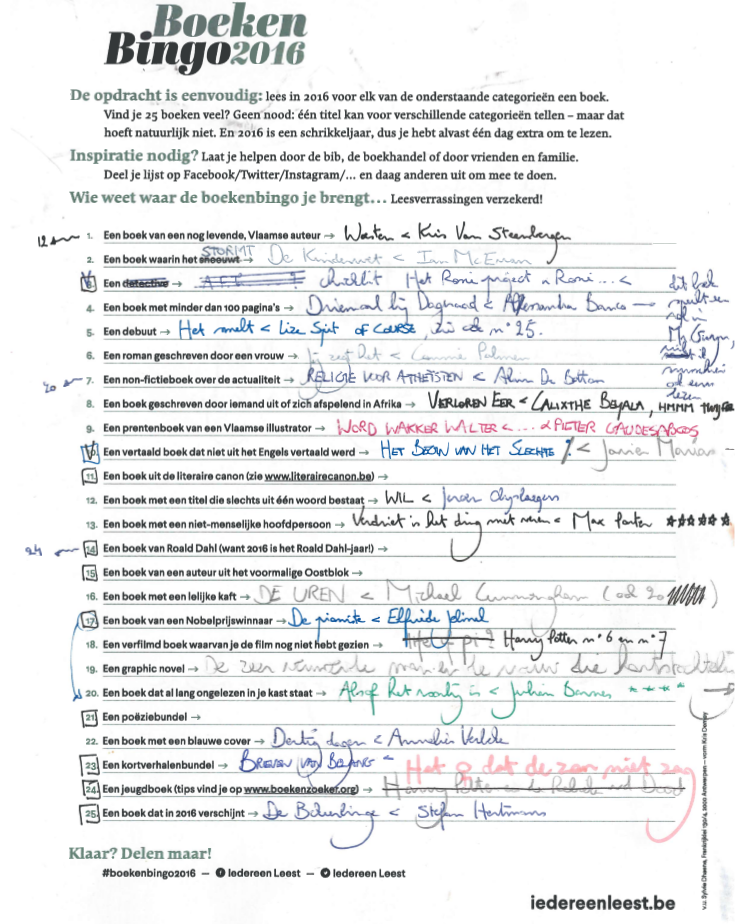 Boeken
Bingo2016
De opdracht is eenvoudig: lees in 2016 voor elk van de onderstaande categorieën een boek.
Vind je 25 boeken veel? Geen nood: één titel kan voor verschillende categorieën tellen – maar dat
hoeft natuurlijk niet. En 2016 is een schrikkeljaar, dus je hebt alvast één dag extra om te lezen.
Inspiratie nodig? Laat je helpen door de bib, de boekhandel of door vrienden en familie.
Deel je lijst op Facebook/Twitter/Instagram/... en daag anderen uit om mee te doen.
Wie weet waar de boekenbingo je brengt... Leesverrassingen verzekerd!
12 1. Een boek van een nog levende, Vlaamse auteur → Woesten < Kris Van Steenbergen
STORMT
2. Een boek waarin het sneeuwt → De Kinderwet < Ian McEwan
3. Een detective → Chicklit Het Rosie project n Rosie... < dit boek
4. Een boek met minder dan 100 pagina's → Driemaal bij Dageraad < Alessandro Baricco speelt een
5. Een debuut → Het smelt < Lize Spit OF COURSE, zie ook n° 25.
6. Een roman geschreven door een vrouw → Jij zegt het < Connie Palmen
20 7. Een non-fictieboek over de actualiteit → RELIGIE VOOR ATHEÏSTEN < Alain De Botton
8. Een boek geschreven door iemand uit of zich afspelend in Afrika → VERLOREN EER < CALIXTHE BEYALA, HMMM
9. Een prentenboek van een Vlaamse illustrator → WORD WAKKER WALTER < ... & PIETER GAUDESABOOS
10. Een vertaald boek dat niet uit het Engels vertaald werd → HET BEGIN VAN HET SLECHTE < Javier Marías
11. Een boek uit de literaire canon (zie www.literairecanon.be) →
12. Een boek met een titel die slechts uit één woord bestaat → WIL < Jeroen Olyslaegers
13. Een boek met een niet-menselijke hoofdpersoon → Verdriet is het ding met veren < Max Porter ★★★★★
24 14. Een boek van Roald Dahl (want 2016 is het Roald Dahl-jaar!) →
15. Een boek van een auteur uit het voormalige Oostblok →
16. Een boek met een lelijke kaft → DE UREN < Michael Cunningham (ook 20)
17. Een boek van een Nobelprijswinnaar → De pianiste < Elfriede Jelinek
18. Een verfilmd boek waarvan je de film nog niet hebt gezien → Harry Potter n° 6 en n° 7
19. Een graphic novel → De zeer vermoeide man en de vrouw die
20. Een boek dat al lang ongelezen in je kast staat → Alsof het voorbij is < Julian Barnes ****
21. Een poëziebundel →
22. Een boek met een blauwe cover → Dertig dagen < Annelies Verbeke
23. Een kortverhalenbundel → BREVEN VAN BELANG - Het dat de zon niet zag
24. Een jeugdboek (tips vind je op www.boekenzoeker.org) → Harry Potter
25. Een boek dat in 2016 verschijnt → De Bekeerlinge < Stefan Hertmans
Klaar? Delen maar!
#boekenbingo2016 — Iedereen Leest — Iedereen Leest
iedereenleest.be